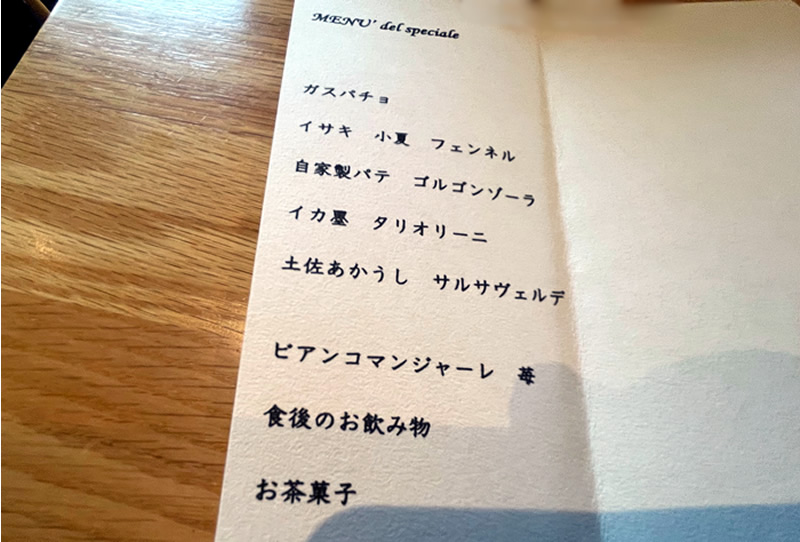 MENU' del speciale
ガスパチョ
イサキ　小夏　フェンネル
自家製パテ　ゴルゴンゾーラ
イカ墨　タリオリーニ
土佐あかうし　サルサヴェルデ
ビアンコマンジャーレ　苺
食後のお飲み物
お茶菓子